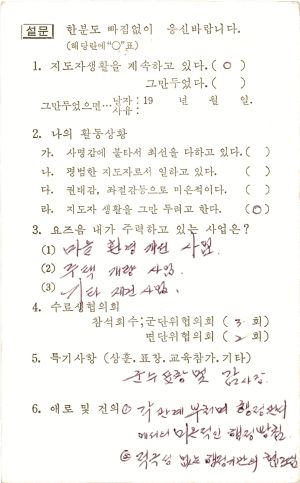 설문 한분도 빠짐없이 응신바랍니다.
(해당란에 "○"표)
1. 지도자생활을 계속하고 있다. ( ○ )
그만두었다. ( )
그만두었으면… 날자 : 19 년 월 일.
사유 :
2. 나의 활동상황
가. 사명감에 불타서 최선을 다하고 있다. ( )
나. 평범한 지도자로서 일하고 있다. ( )
다. 권태감, 좌절감등으로 미온적이다. ( )
라. 지도자 생활을 그만 두려고 한다. ( ○ )
3. 요즈음 내가 주력하고 있는 사업은?
(1) 마을 환경 개선 사업.
(2) 주택 개량 사업.
(3) 기타 사업.
4. 수료생협의회
참석회수 ; 군단위협의회 ( 3 회)
면단위협의회 ( 회)
5. 특기사항 (상훈. 표창. 교육참가. 기타)
군수 표창 및 감사장
6. 애로 및 건의 ① 각 부처며 행정
미온적인 행정 방침.
② 적극성 없는 행정기관의